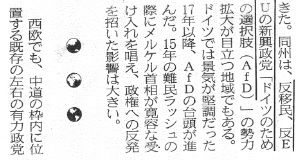 きた。同州は、反移民、反E
Uの新興政党「ドイツのため
の選択肢（AfD）」の勢力
拡大が目立つ地域でもある。
ドイツでは景気が堅調だった
17年以降、AfDの台頭が進
んだ。15年の難民ラッシュの
際にメルケル首相が寛容な受
け入れを唱え、政権への反発
を招いた影響は大きい。
西欧でも、中道の枠内に位
置する既存の左右の有力政党